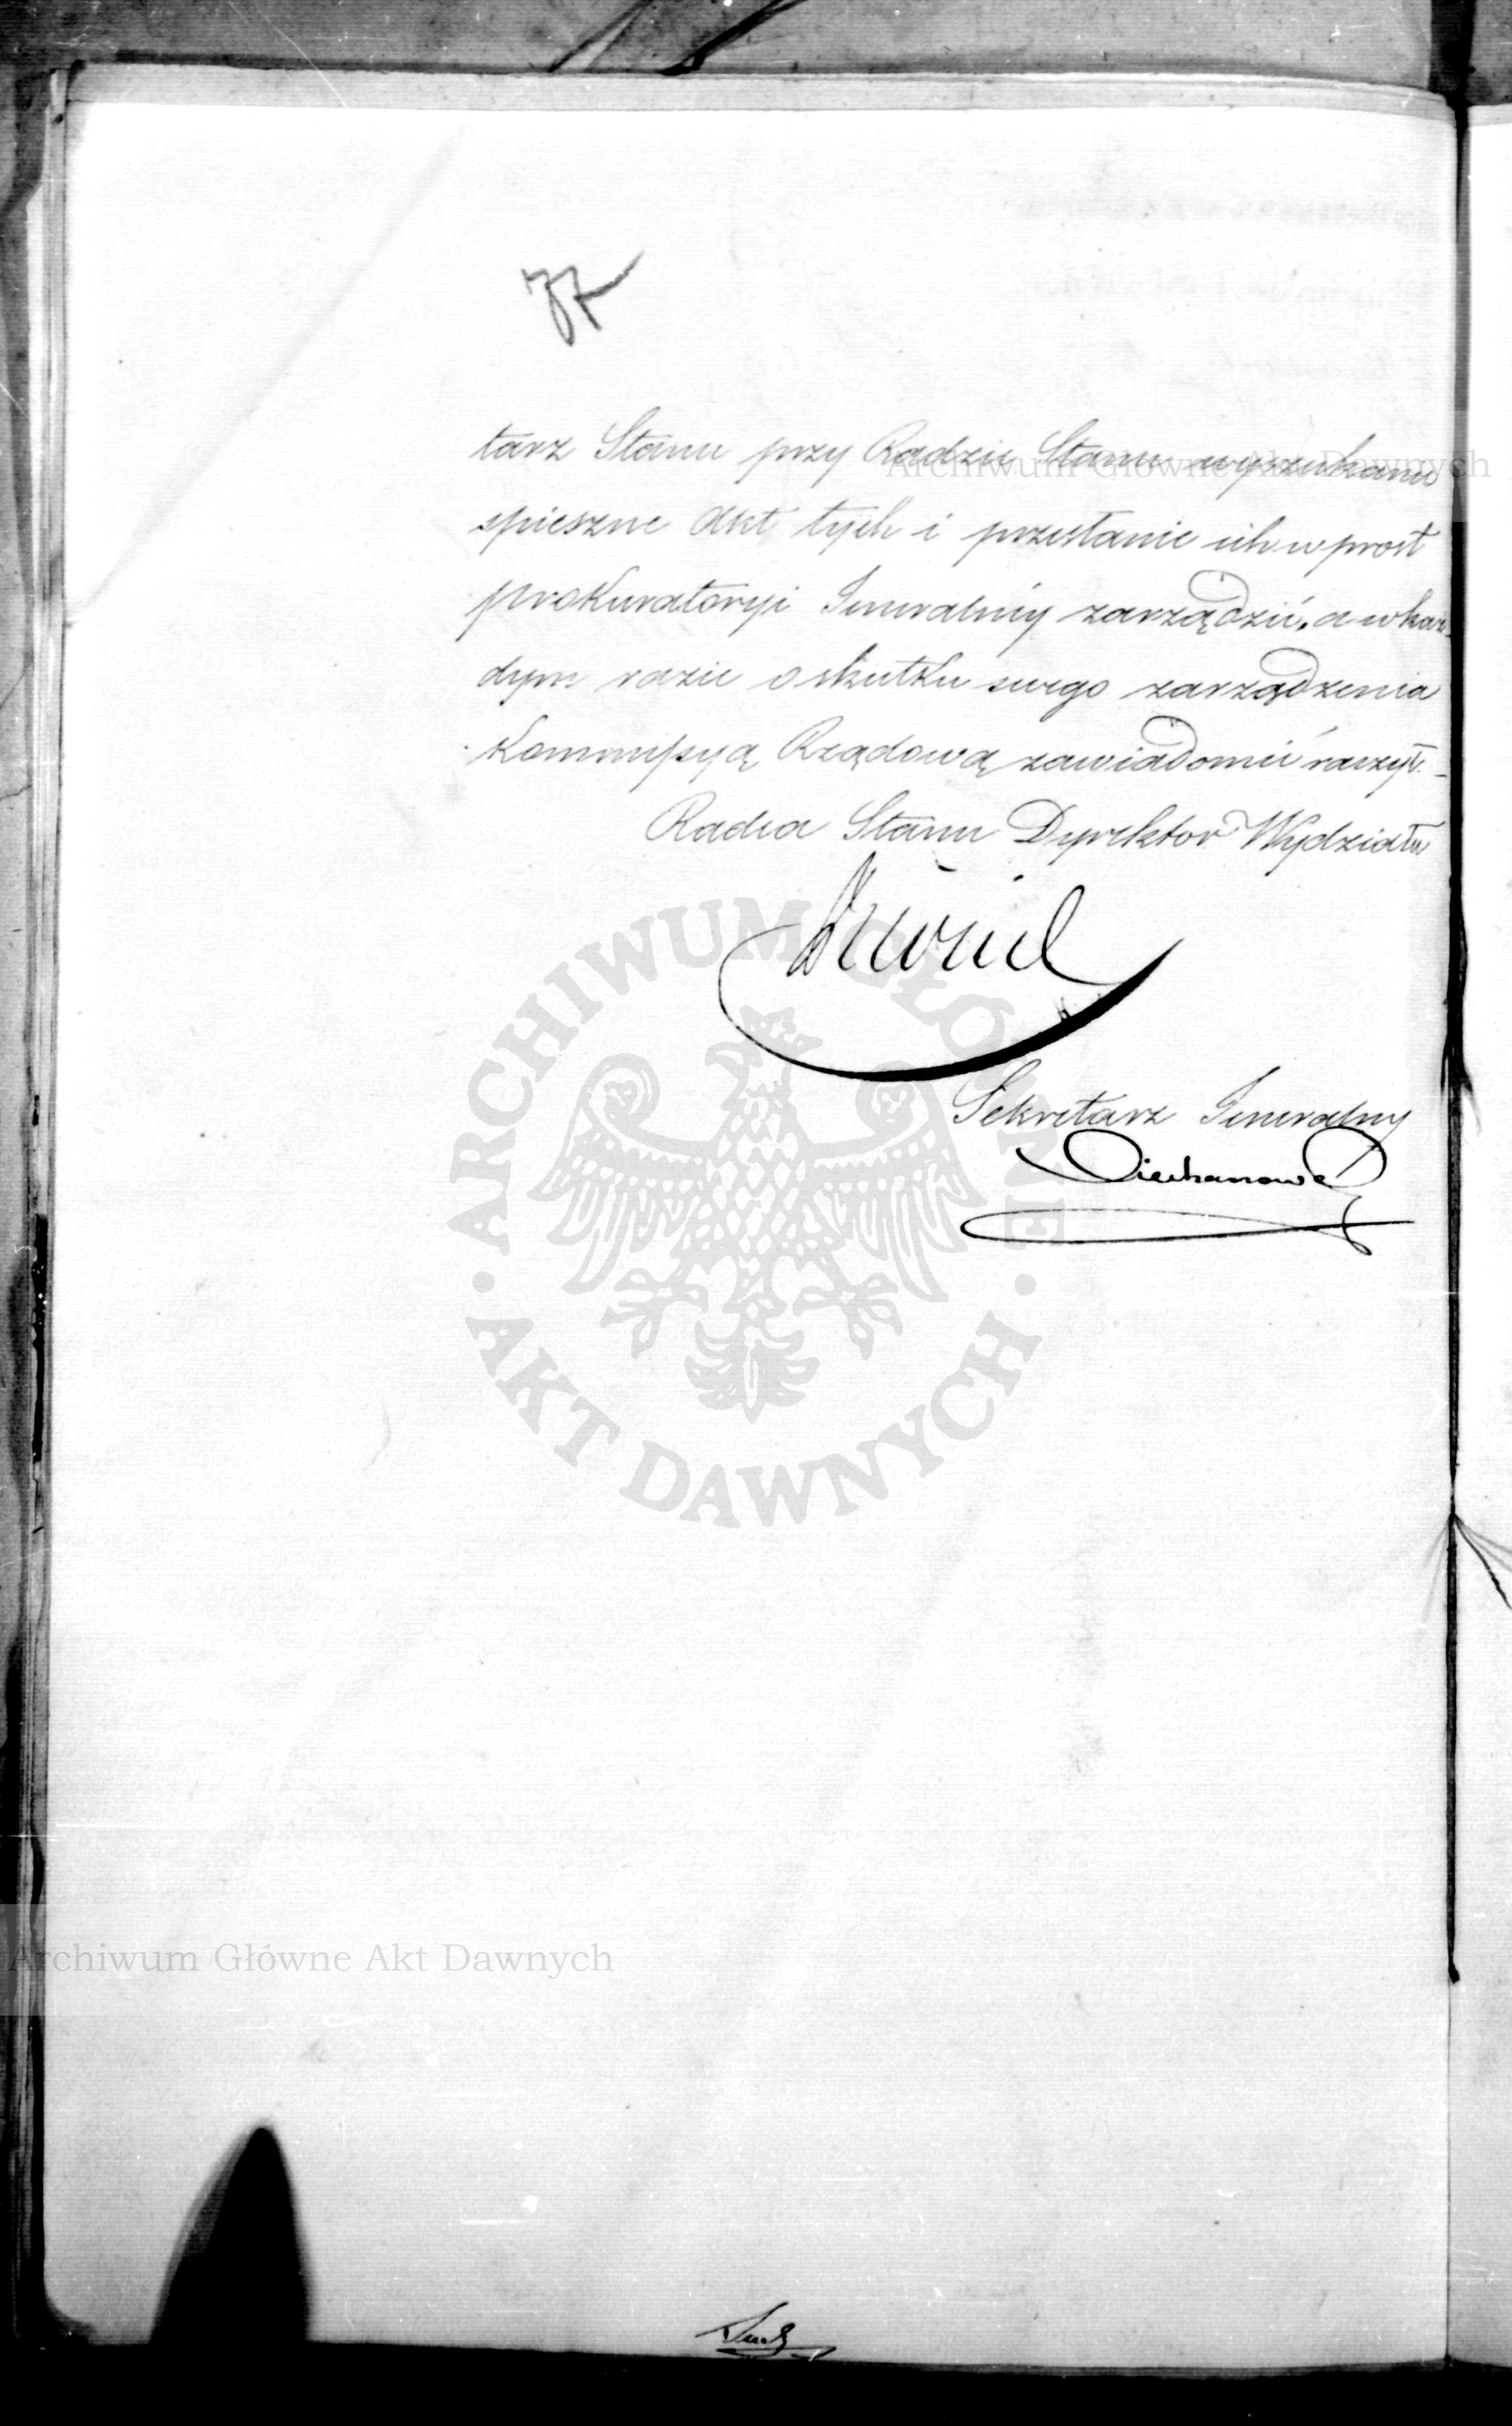 77
tarz Stanu przy Radzie Stanu wyszukanie
spieszne Akt tych i przesłanie ich wprost
prokuratoryi Jeneralnéy zarządzić, a w każ-
dym razie o skutku swego zarządzenia
Kommissyą Rządową zawiadomić raczył.
Radca Stanu Dyrektor Wydziału
Sekretarz Jeneralny
Archiwum Główne Akt Dawnych
ARCHIWUM GŁÓWNE · AKT DAWNYCH ·
Archiwum Główne Akt Dawnych